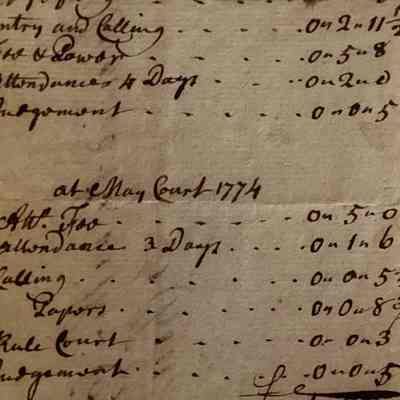 ntry and Calling - - - - 0 " 2 " 11 1/2
Fee & Power - - - - 0 " 5 " 8
Attendances 4 Days - - - 0 " 2 " 0
Judgement - - - - 0 " 0 " 5
at May Court 1774
Att.y Fee - - - - 0 " 5 " 0
Attendance 3 Days - - - 0 " 1 " 6
Calling - - - - 0 " 0 " 5
Papers - - - - 0 " 0 " 8
Rule Court - - - - 0 " 0 " 3
Judgement - - - - 0 " 0 " 5